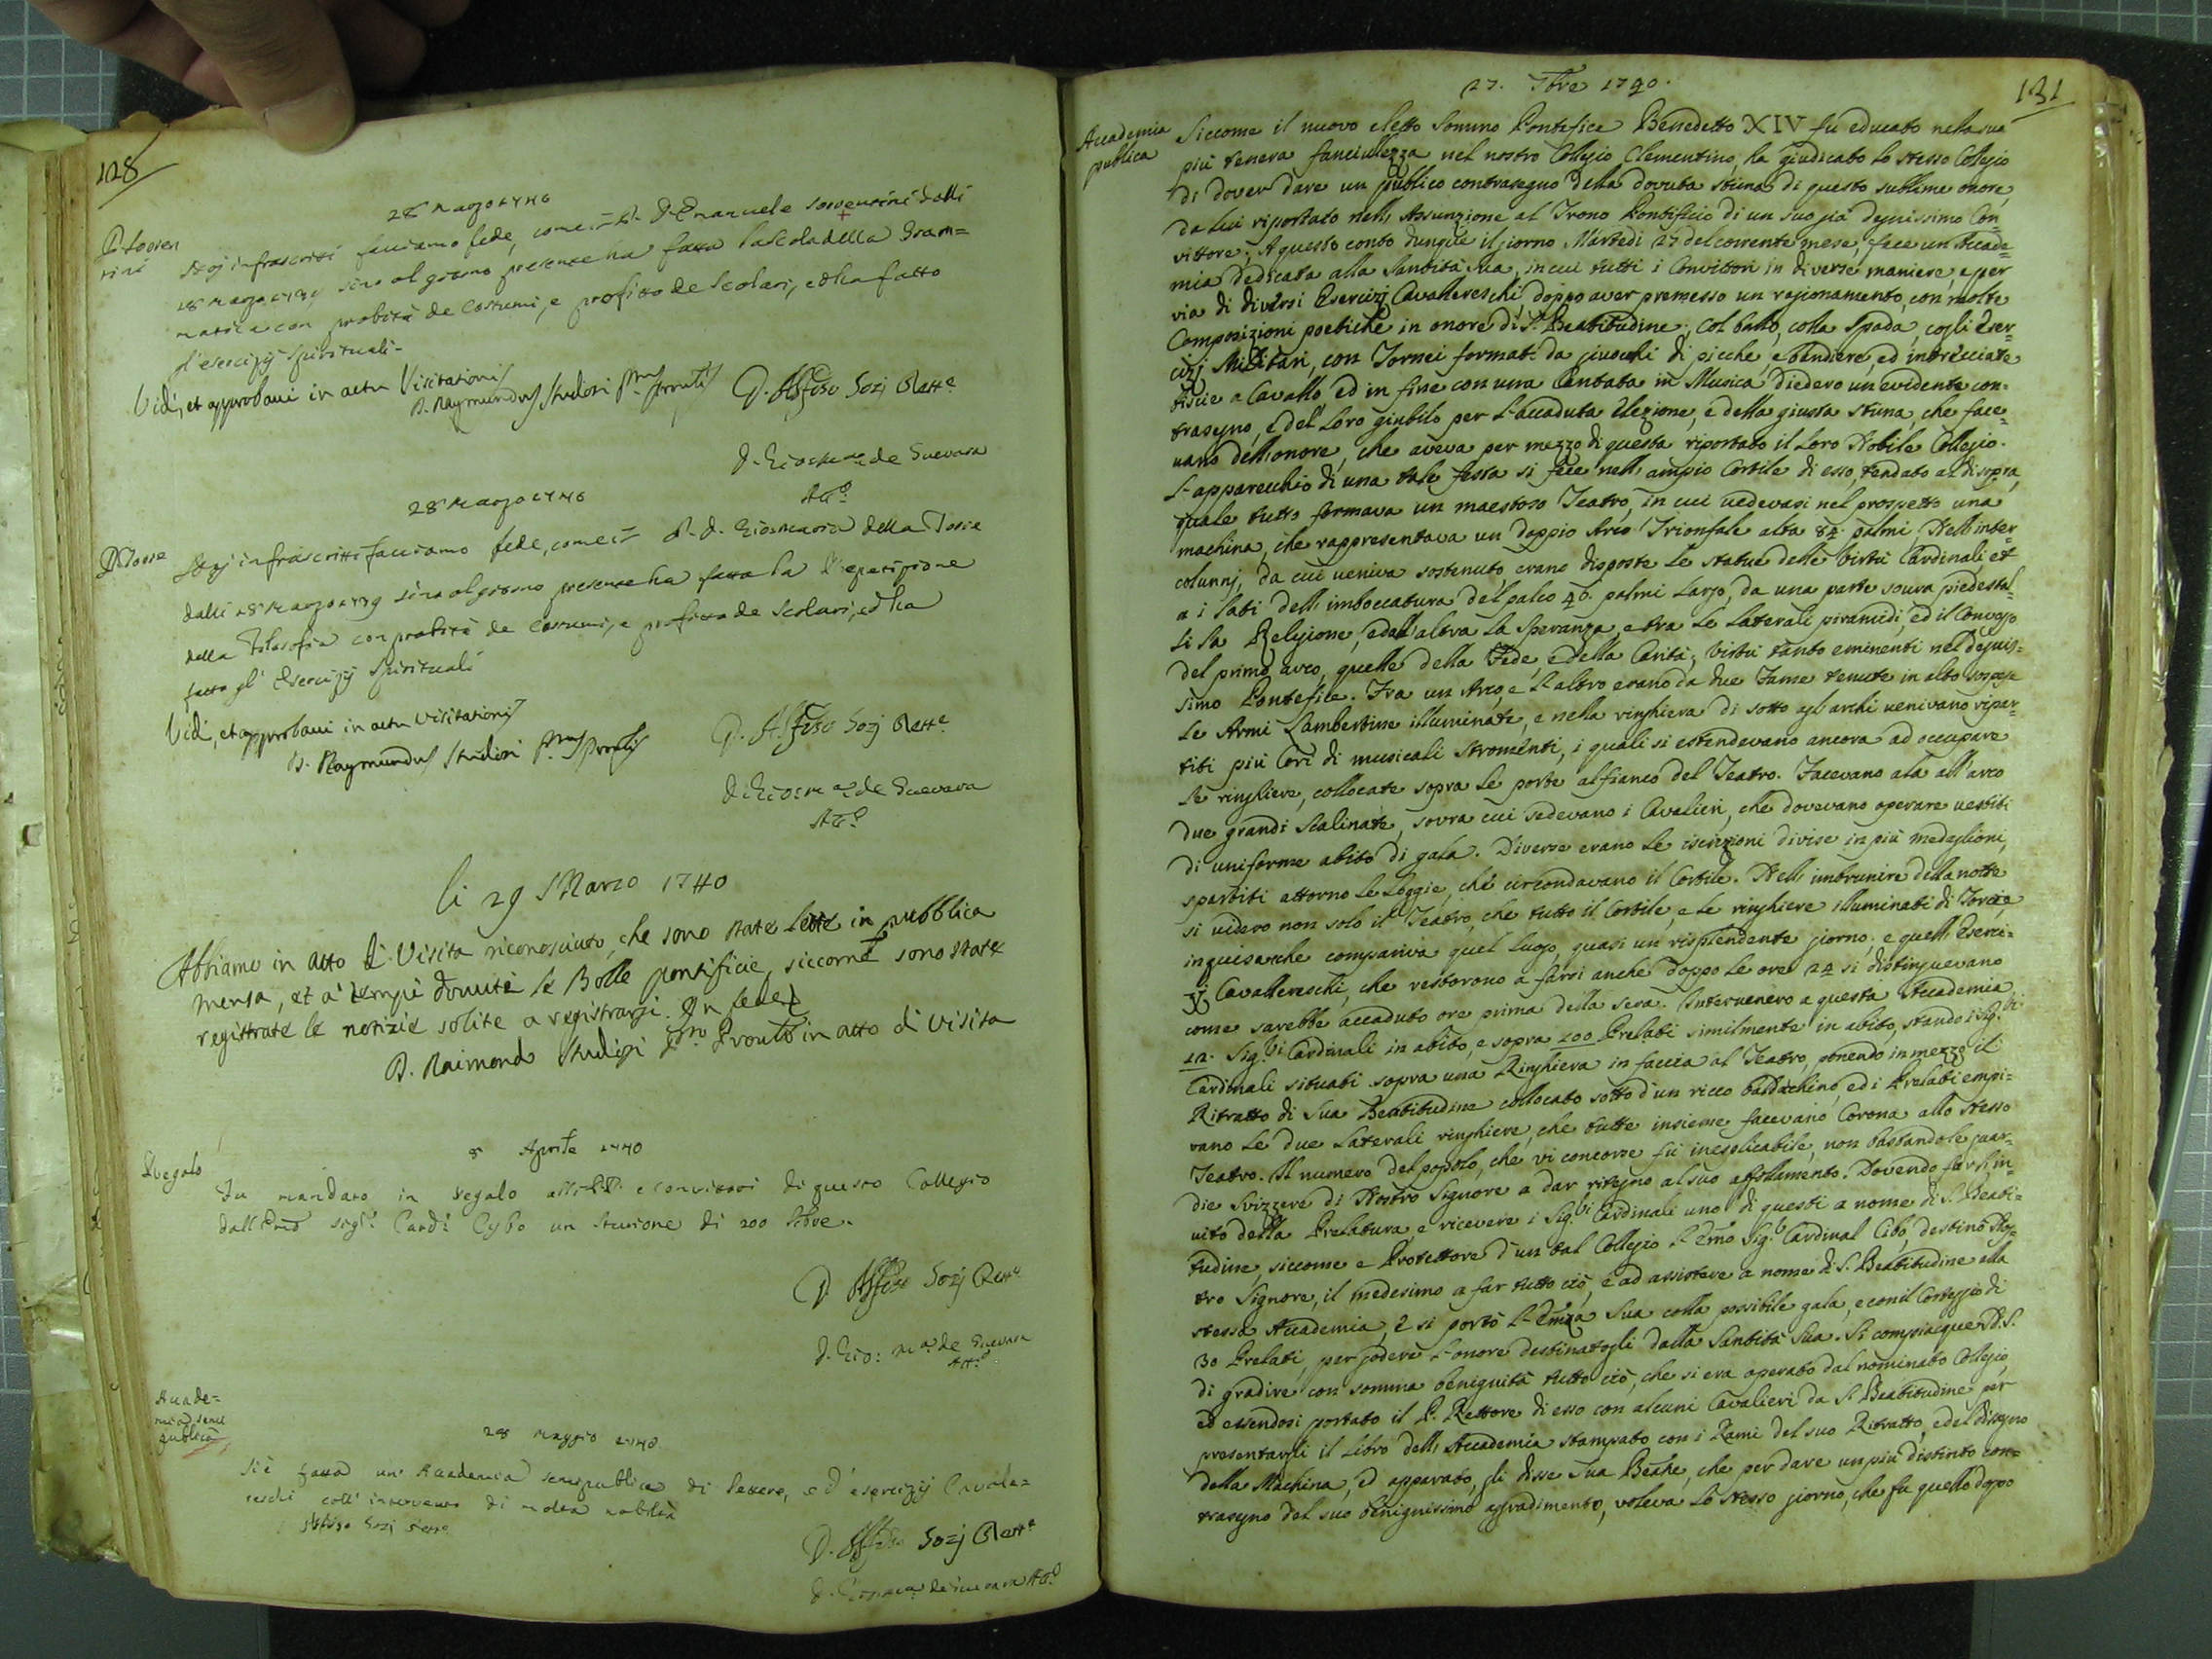 128
28 Marzo 1740
P. Soven
rini
Noj infrascritti facciamo fede, come il P. D. Emanuele Soverini dalli
28 Marzo 1739 sino al giorno presente ha fatta la scola della Gram=
matica con probità de Costumi, e profitto de Scolari, ed ha fatto
gl'esercizij Spirituali.
Vidi, et approbavi in actu Visitationis
D. Raymundus Studiosi
D. Alfōso Sozj Rett.e
D. Gio: M.a de Guevara
Att.o
28 Marzo 1740
P. Torre
Noj infrascritti facciamo fede, come il P. D. Giomaria della Torre
dalli 28 Marzo 1739 sino al giorno presente ha fatta la Repetizione
della Filosofia con probità de Costumi, e profitto de Scolari, ed ha
fatto gl'Esercizij Spirituali
Vidi, et approbavi in actu visitationis
D. Raymundus Studiosi
D. Alfōso Sozj Rett.e
D. Gio: M.a de Guevara
Att.o
li 29 Marzo 1740
Abbiamo in atto di Visita riconosciuto, che sono state lette in pubblica
mensa, et a' tempi dovuti le Bolle pontificie, siccome sono state
registrate le notizie solite a registrarsi. In fede
D. Raimondo Studiosi in atto di Visita
8 Aprile 1740
Regalo
Fu mandato in regalo alli PP. e Convittori di questo Collegio
dall'Emō Sig.r Card.l Cybo un Sturione di 200 libre.
D. Alfōso Sozj Rett.e
D. Gio: M.a de Guevara
Att.o
Accade=
mia semi
publica
28 Maggio 1740
Si è fatta un'Accademia semipublica di lettere, ed esercizij Cavale=
reschi coll'intervento di molta nobiltà
D. Alfōso Sozj Rett.e
D. Gio: M.a de Guevara Att.o
131
27. 7bre 1740.
Accademia
publica
Siccome il nuovo eletto Sommo Pontefice Benedetto XIV fu educato nella sua
più tenera fanciulezza nel nostro Collegio Clementino, ha giudicato lo stesso Collegio
di dover dare un publico contrasegno della dovuta stima di questo sublime onore,
da lui riportato nell'Assunzione al Trono Pontificio di un suo già degnissimo Con=
vittore; A questo conto dunque il giorno Martedi 27 del corrente mese, fece un'Accade=
mia dedicata alla Santità Sua, in cui tutti i Convittori in diverse maniere, e per
via di diversi Esercizj Cavallereschi, doppo aver premesso un ragionamento, con molte
Composizioni poetiche in onore di S. Beatitudine, col ballo, colla spada, cogli Eser=
cizj Militari, con Tornei formati da giuochi di picche, e bandiere, ed intrecciate
biscie a Cavallo, ed in fine con una Cantata in Musica, diedero un evidente con=
trasegno, e del loro giubilo per l'accaduta Elezione, e della giusta stima, che face=
vano dell'onore, che aveva per mezzo di questa riportato il loro Nobile Collegio.
L'apparecchio di una tale festa si fece nell'ampio Cortile di esso, tendato al disopra,
quale tutto formava un maestoso Teatro, in cui vedevasi nel prospetto una
machina, che rappresentava un doppio Arco Trionfale alta 84. palmi. Nell'inter=
colunnj, da cui veniva sostenuto, erano disposte le statue delle Virtù Cardinali, et
a i lati dell'imboccatura del palco 40. palmi largo, da una parte sovra piedestal=
li la Religione, e dall'altra la Speranza, e tra le laterali piramidi, ed il Convesso
del primo arco, quelle della Fede, e della Carità, Virtù tanto eminenti nel degnis=
simo Pontefice. Tra un Arco, e l'altro erano da due Fame tenute in alto sospese
le Armi Lambertine illuminate, e nella ringhiera di sotto agl'archi venivano ripar=
titi più Cori di musicali stromenti, i quali si estendevano ancora ad occupare
le ringhiere, collocate sopra le porte al fianco del Teatro. Facevano ala all'arco
due grandi Scalinate, sovra cui sedevano i Cavalieri, che dovevano operare vestiti
di uniforme abito di gala. Diverse erano le iscrizioni divise in più medaglioni,
spartiti attorno le Loggie, che circondavano il Cortile. Nell'imbrunire della notte
si videro non solo il Teatro, che tutto il Cortile, e le ringhiere illuminati di Torcie
inguisa che compariva quel luogo, quasi un risplendente giorno; e quelli Eserci=
zj Cavallereschi, che restorono a farsi anche doppo le ore 24 si distinguevano
come sarebbe accaduto ore prima della sera. Intervenero a questa Accademia
12. Sig.ri Cardinali in abito, e sopra 100 Prelati similmente in abito, stando i Sig.ri
Cardinali situati sopra una Ringhiera in faccia al Teatro, ponendo in mezzo il
Ritratto di Sua Beatitudine collocato sotto d'un ricco baldachino, ed i Prelati empi=
vano le due laterali ringhiere, che tutte insieme facevano Corona allo stesso
Teatro. Il numero del popolo, che vi concorse fù inesplicabile, non bastandole guar=
die Svizzere di Nostro Signore a dar ritegno al suo affollamento. Dovendo farsi in=
vito della Prelatura, e ricevere i Sig.ri Cardinali uno di questi a nome di S. Beati=
tudine, siccome e Protettore d'un tal Collegio l'Emō Sig.r Cardinal Cibo, destinò Nos=
tro Signore, il medesimo a far tutto ciò, e ad assistere a nome di S. Beatitudine alla
stessa Accademia, e si portò l'Emza Sua colla possibile gala, e con il Corteggio di
30 Prelati, per godere l'onore destinatogli dalla Santità Sua. Si compiacque N.S.
di gradire con somma benignità tutto ciò, che si era operato dal nominato Collegio,
ed essendosi portato il P. Rettore di esso con alcuni Cavalieri da S. Beatitudine per
presentargli il Libro dell'Accademia stampato con i Rami del suo Ritratto, e del disegno
della Machina, ed apparato, gli disse Sua Beatne, che per dare un più distinto con=
trasegno del suo benignissimo aggradimento, voleva lo stesso giorno, che fu quello dopo